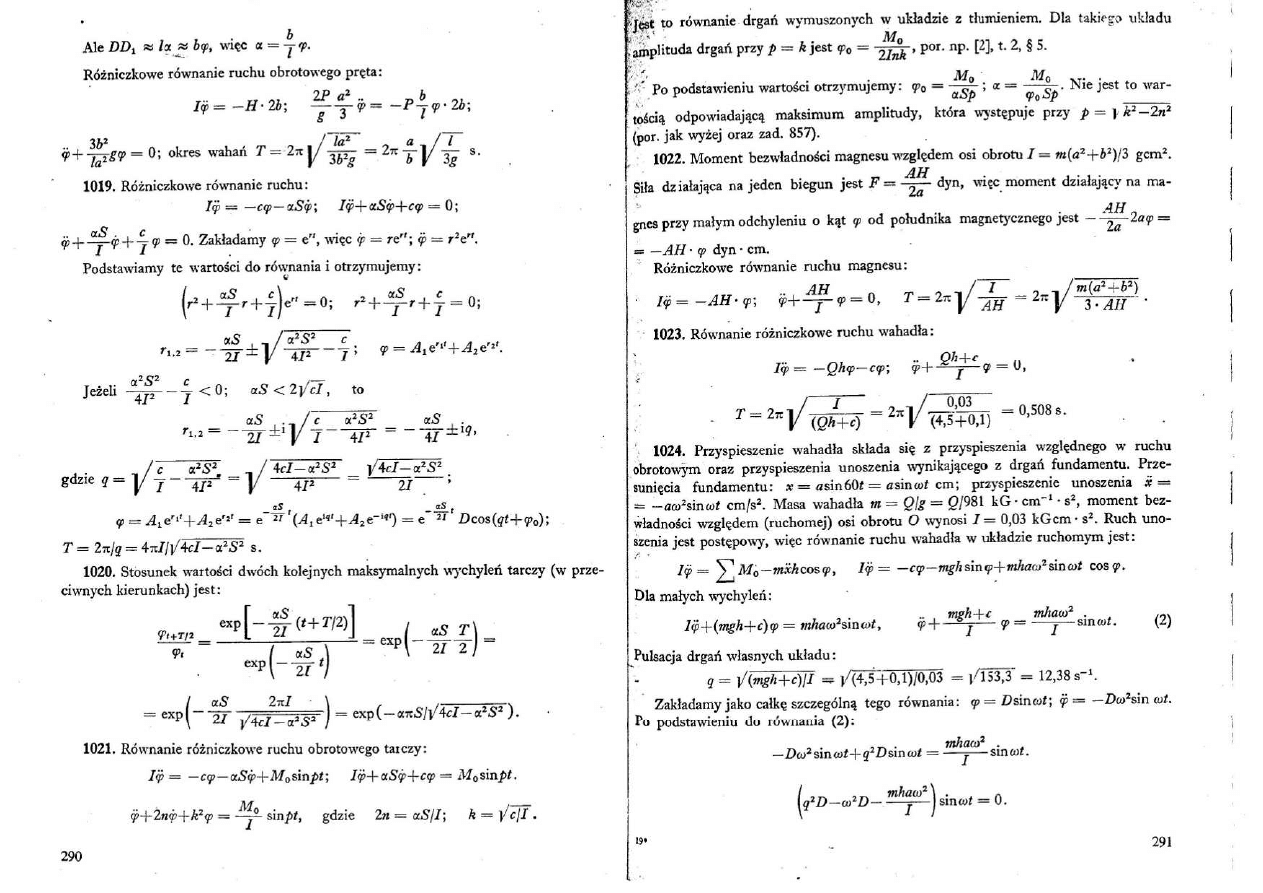 Ale DD₁ ≈ lα ≈ bφ, więc α = b/l φ.
Różniczkowe równanie ruchu obrotowego pręta:
Iφ̈ = −H · 2b; 2P/g a²/3 φ̈ = −P b/l φ · 2b;
φ̈ + 3b²/la² gφ = 0; okres wahań T = 2π √(la²/3b²g) = 2π a/b √(l/3g) s.
1019. Różniczkowe równanie ruchu:
Iφ̈ = −cφ−αSφ̇; Iφ̈+αSφ̇+cφ = 0;
φ̈ + αS/I φ̇ + c/I φ = 0. Zakładamy φ = eʳᵗ, więc φ̇ = reʳᵗ; φ̈ = r²eʳᵗ.
Podstawiamy te wartości do równania i otrzymujemy:
(r² + αS/I r + c/I) eʳᵗ = 0; r² + αS/I r + c/I = 0;
r₁.₂ = − αS/2I ± √(α²S²/4I² − c/I); φ = A₁e^(r₁t)+A₂e^(r₂t).
Jeżeli α²S²/4I² − c/I < 0; αS < 2√(cI), to
r₁.₂ = − αS/2I ± i √(c/I − α²S²/4I²) = − αS/4I ± iq,
gdzie q = √(c/I − α²S²/4I²) = √((4cI−α²S²)/4I²) = √(4cI−α²S²)/2I;
φ = A₁e^(r₁t)+A₂e^(r₂t) = e^(−αS/2I t) (A₁e^(iqt)+A₂e^(−iqt)) = e^(−αS/2I t) Dcos(qt+φ₀);
T = 2π/q = 4πI/√(4cI−α²S²) s.
1020. Stosunek wartości dwóch kolejnych maksymalnych wychyleń tarczy (w prze-
ciwnych kierunkach) jest:
φₜ₊T/2 / φₜ = exp[− αS/2I (t+T/2)] / exp(− αS/2I t) = exp(− αS/2I T/2) =
= exp(− αS/2I 2πI/√(4cI−α²S²)) = exp(−απS/√(4cI−α²S²)).
1021. Równanie różniczkowe ruchu obrotowego tarczy:
Iφ̈ = −cφ−αSφ̇+M₀sinpt; Iφ̈+αSφ̇+cφ = M₀sinpt.
φ̈+2nφ̇+k²φ = M₀/I sinpt, gdzie 2n = αS/I; k = √(c/I).
290
Jest to równanie drgań wymuszonych w układzie z tłumieniem. Dla takiego układu
amplituda drgań przy p = k jest φ₀ = M₀/2Ink, por. np. [2], t. 2, § 5.
Po podstawieniu wartości otrzymujemy: φ₀ = M₀/αSp; α = M₀/φ₀Sp. Nie jest to war-
tością odpowiadającą maksimum amplitudy, która występuje przy p = √(k²−2n²)
(por. jak wyżej oraz zad. 857).
1022. Moment bezwładności magnesu względem osi obrotu I = m(a²+b²)/3 gcm².
Siła działająca na jeden biegun jest F = AH/2a dyn, więc moment działający na ma-
gnes przy małym odchyleniu o kąt φ od południka magnetycznego jest − AH/2a 2aφ =
= −AH · φ dyn · cm.
Różniczkowe równanie ruchu magnesu:
Iφ̈ = −AH · φ; φ̈+ AH/I φ = 0, T = 2π √(I/AH) = 2π √(m(a²+b²)/3 · AH).
1023. Równanie różniczkowe ruchu wahadła:
Iφ̈ = −Qhφ−cφ; φ̈+ (Qh+c)/I φ = 0,
T = 2π √(I/(Qh+c)) = 2π √(0,03/(4,5+0,1)) = 0,508 s.
1024. Przyspieszenie wahadła składa się z przyspieszenia względnego w ruchu
obrotowym oraz przyspieszenia unoszenia wynikającego z drgań fundamentu. Prze-
sunięcia fundamentu: x = asin60t = asinωt cm; przyspieszenie unoszenia ẍ =
= −aω²sinωt cm/s². Masa wahadła m = Q/g = Q/981 kG · cm⁻¹ · s², moment bez-
władności względem (ruchomej) osi obrotu O wynosi I = 0,03 kGcm · s². Ruch uno-
szenia jest postępowy, więc równanie ruchu wahadła w układzie ruchomym jest:
Iφ̈ = ∑ M₀−mẍhcosφ, Iφ̈ = −cφ−mghsinφ+mhaω²sinωt cosφ.
Dla małych wychyleń:
Iφ̈+(mgh+c)φ = mhaω²sinωt, φ̈ + (mgh+c)/I φ = mhaω²/I sinωt. (2)
Pulsacja drgań własnych układu:
q = √((mgh+c)/I) = √((4,5+0,1)/0,03) = √153,3 = 12,38 s⁻¹.
Zakładamy jako całkę szczególną tego równania: φ = Dsinωt; φ̈ = −Dω²sin ωt.
Po podstawieniu do równania (2):
−Dω²sinωt+q²Dsinωt = mhaω²/I sinωt.
(q²D−ω²D− mhaω²/I) sinωt = 0.
19* 291